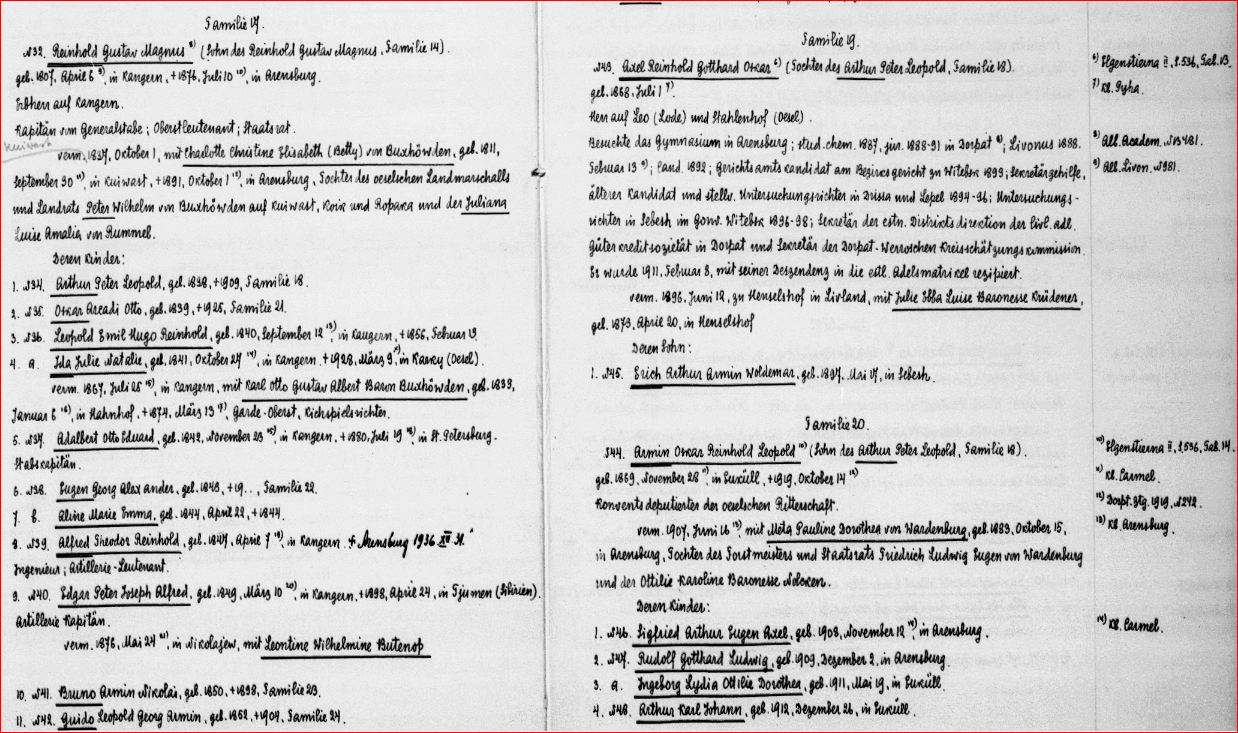 Familie 17.
№32. Reinhold Gustav Magnus 8) (Sohn des Reinhold Gustav Magnus, Familie 14).
geb. 1807, April 6 9), in Kangern, +1876, Juli 10 10), in Arensburg.
Erbherr auf Kangern.
Kapitän vom Generalstabe; Oberstleutenant; Staatsrat.
Kuiwast
verm. 1837, Oktober 1, mit Charlotte Christine Elisabeth (Betty) von Buxhöwden, geb. 1811,
September 30 11), in Kuiwast, +1891, Oktober 1 12), in Arensburg, Tochter des oeselschen Landmarschalls
und Landrats Peter Wilhelm von Buxhöwden auf Kuiwast, Koik und Ropaka und der Juliana
Luise Amalia von Rummel.
Deren Kinder:
1. №34. Arthur Peter Leopold, geb. 1838, +1909, Familie 18.
2. №35. Oskar Arcadi Otto, geb. 1839, +1925, Familie 21.
3. №36. Leopold Emil Hugo Reinhold, geb. 1840, September 12 13), in Kangern, +1856, Februar 13.
4. a. Ida Julie Natalie, geb. 1841, Oktober 27 14), in Kangern, +1928, März 9, in Karky (Oesel).
verm. 1867, Juli 25 15), in Kangern, mit Karl Otto Gustav Albert Baron Buxhöwden, geb. 1839,
Januar 6 16), in Hahnhof, +1874, März 13 17), Garde-Oberst, Kirchspielsrichter.
5. №37. Adalbert Otto Eduard, geb. 1842, November 23 18), in Kangern, +1880, Juli 19 18), in St. Petersburg.
Stabskapitän.
6. №38. Eugen Georg Alexander, geb. 1843, +19.., Familie 22.
7. b. Aline Marie Emma, geb. 1844, April 22, +1844.
8. №39. Alfred Theodor Reinhold, geb. 1847, April 7 19), in Kangern. + Arensburg 1936 XII 31.
Ingenieur; Artillerie-Leutenant.
9. №40. Edgar Peter Joseph Alfred, geb. 1849, März 10 20), in Kangern, +1898, April 24, in Tjumen (Sibirien).
Artillerie Kapitän.
verm. 1876, Mai 24 21), in Nikolajew, mit Leontine Wilhelmine Butenop
10. №41. Bruno Armin Nikolai, geb. 1850, +1898, Familie 23.
11. №42. Guido Leopold Georg Armin, geb. 1852, +1904, Familie 24.
Familie 19.
№43. Axel Reinhold Gotthard Oskar 6) (Tochter des Arthur Peter Leopold, Familie 18).
geb. 1868, Juli 1 7).
Herr auf Leo (Lode) und Stahlenhof (Oesel).
Besuchte das Gymnasium in Arensburg; stud. chem. 1887, jur. 1888-91 in Dorpat 8); Livonus 1888.
Februar 13 9); Cand. 1892; Gerichtsamtskandidat am Bezirksgericht zu Witebsk 1893; Sekretärgehilfe,
älterer Kandidat und stellv. Untersuchungsrichter in Drissa und Lepel 1894-96; Untersuchungs-
richter in Sebesh im Gouv. Witebsk 1896-98; Sekretär der estn. Distriktsdirektion der livl. adl.
Güterkreditsozietät in Dorpat und Sekretär der Dorpat-Werroschen Kreisschätzungskommission.
Er wurde 1911, Februar 8, mit seiner Deszendenz in die estl. Adelsmatrikel rezipiert.
verm. 1896, Juni 12, zu Henselshof in Livland, mit Julie Ebba Luise Baronesse Krüdener,
geb. 1873, April 20, in Henselshof
Deren Sohn:
1. №45. Erich Arthur Armin Woldemar, geb. 1897, Mai 17, in Sebesh.
Familie 20.
№44. Armin Oskar Reinhold Leopold 10) (Sohn des Arthur Peter Leopold, Familie 18).
geb. 1869, November 28 11), in Euküll, +1919, Oktober 14 12)
Konventsdeputierter der oeselschen Ritterschaft.
verm. 1907, Juni 16 13), mit Meta Pauline Dorothea von Wardenburg, geb. 1883, Oktober 15,
in Arensburg, Tochter des Forstmeisters und Staatsrats Friedrich Ludwig Eugen von Wardenburg
und der Ottilie Karoline Baronesse Nolcken.
Deren Kinder:
1. №46. Sigfried Arthur Eugen Axel, geb. 1908, November 12 14), in Arensburg.
2. №47. Rudolf Gotthard Ludwig, geb. 1909, Dezember 2, in Arensburg
3. a. Ingeborg Lydia Ottilie Dorothea, geb. 1911, Mai 19, in Euküll.
4. №48. Arthur Karl Johann, geb. 1912, Dezember 26, in Euküll.
6) Elgenstierna II, S. 536, Tab. 13.
7) Kb. Pyha.
8) Alb. Academ. №13481.
9) Alb. Livon. №981.
10) Elgenstierna II, S. 536, Tab. 14.
11) Kb. Carmel.
12) Dorpt. Ztg. 1919, №242.
13) Kb. Arensburg.
14) Kb. Carmel.